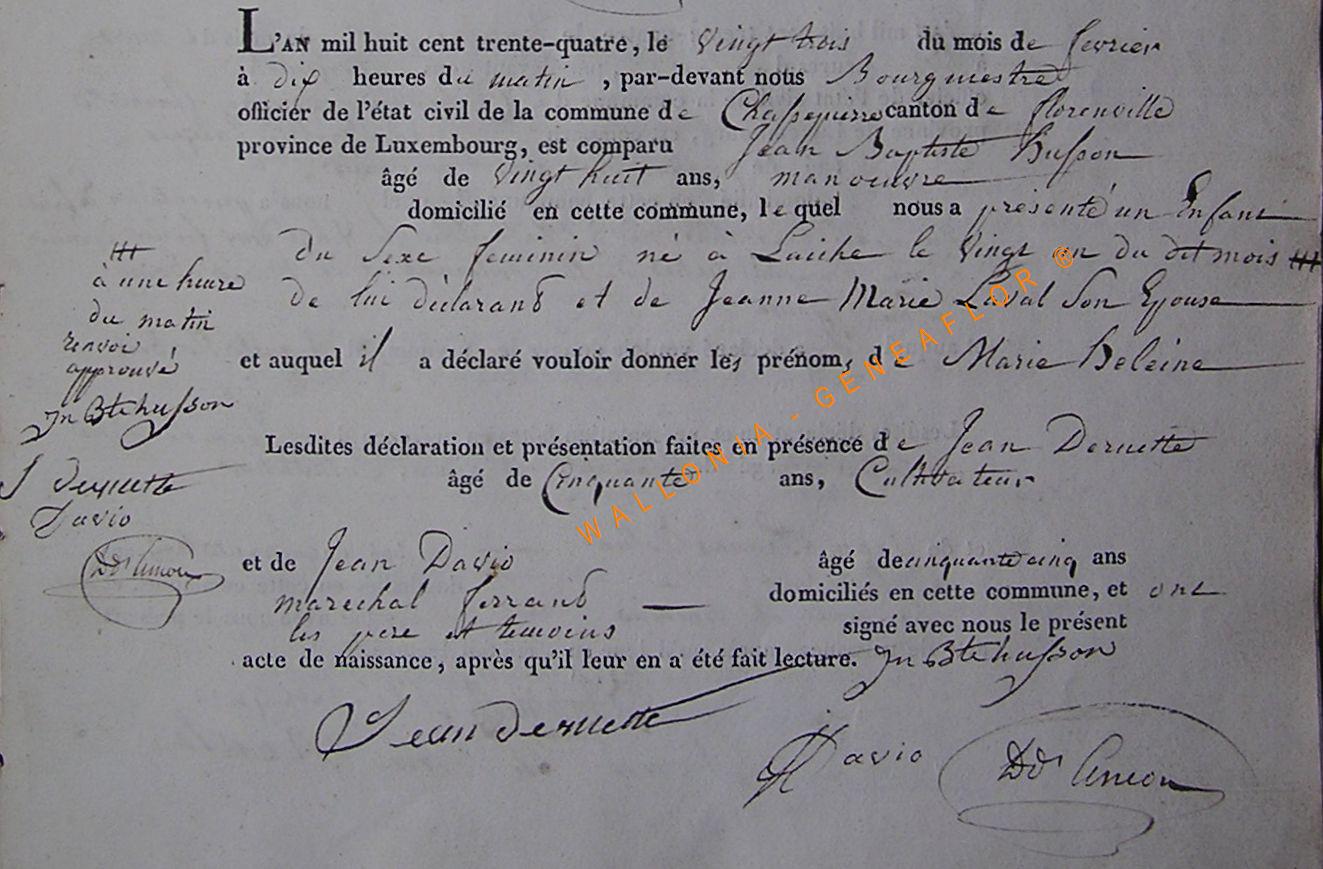 L'AN mil huit cent trente-quatre, le Vingt trois du mois de fevrier
à dix heures du matin, par-devant nous Bourgmestre
officier de l'état civil de la commune de Chassepierre canton de florenville
province de Luxembourg, est comparu Jean Baptiste husson
âgé de Vingt huit ans, manoeuvre
domicilié en cette commune, lequel nous a présenté un Enfant
du Sexe feminin né à Laiche le Vingt un du dit mois
de lui déclarant et de Jeanne Marie Laval Son Epouse
à une heure
du matin
renvoi
approuvé
Jn Bte husson
J Deruette
Davio
et auquel il a déclaré vouloir donner les prénoms de Marie heleine
Lesdites déclaration et présentation faites en présence de Jean Deruette
âgé de Cinquante ans, Cultivateur
et de Jean Davio âgé de cinquante cinq ans
marechal ferrant domiciliés en cette commune, et ont
les père et temoins signé avec nous le présent
acte de naissance, après qu'il leur en a été fait lecture. Jn Bte husson
Jean deruette
J Davio
WALLONIA - GENEAFLOR ®